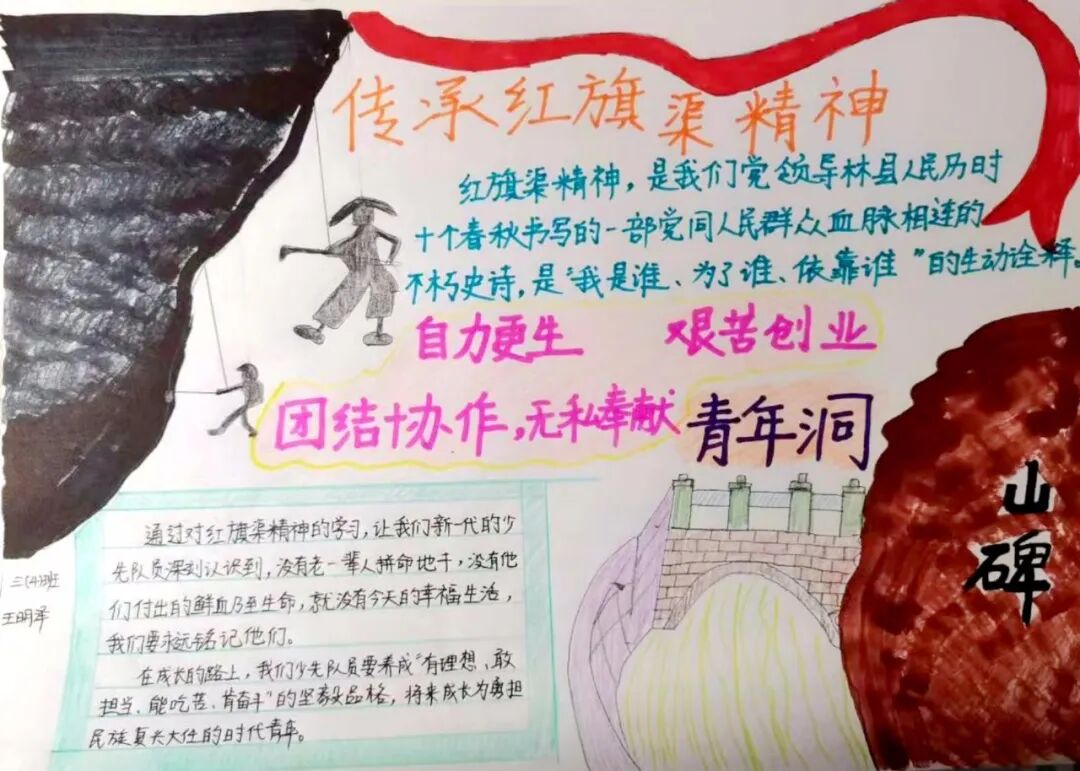 传承红旗渠精神
红旗渠精神，是我们党领导林县人民历时
十个春秋书写的一部党同人民群众血脉相连的
不朽史诗，是“我是谁、为了谁、依靠谁”的生动诠释。
自力更生 艰苦创业
团结协作，无私奉献
青年洞
山
碑
通过对红旗渠精神的学习，让我们新一代的少
先队员深刻认识到，没有老一辈人拼命地干，没有他
们付出的鲜血乃至生命，就没有今天的幸福生活，
我们要永远铭记他们。
在成长的路上，我们少先队员要养成“有理想、敢
担当、能吃苦、肯奋斗”的品格，将来成长为勇担
民族复兴大任的时代青年。
三(4)班
王明泽